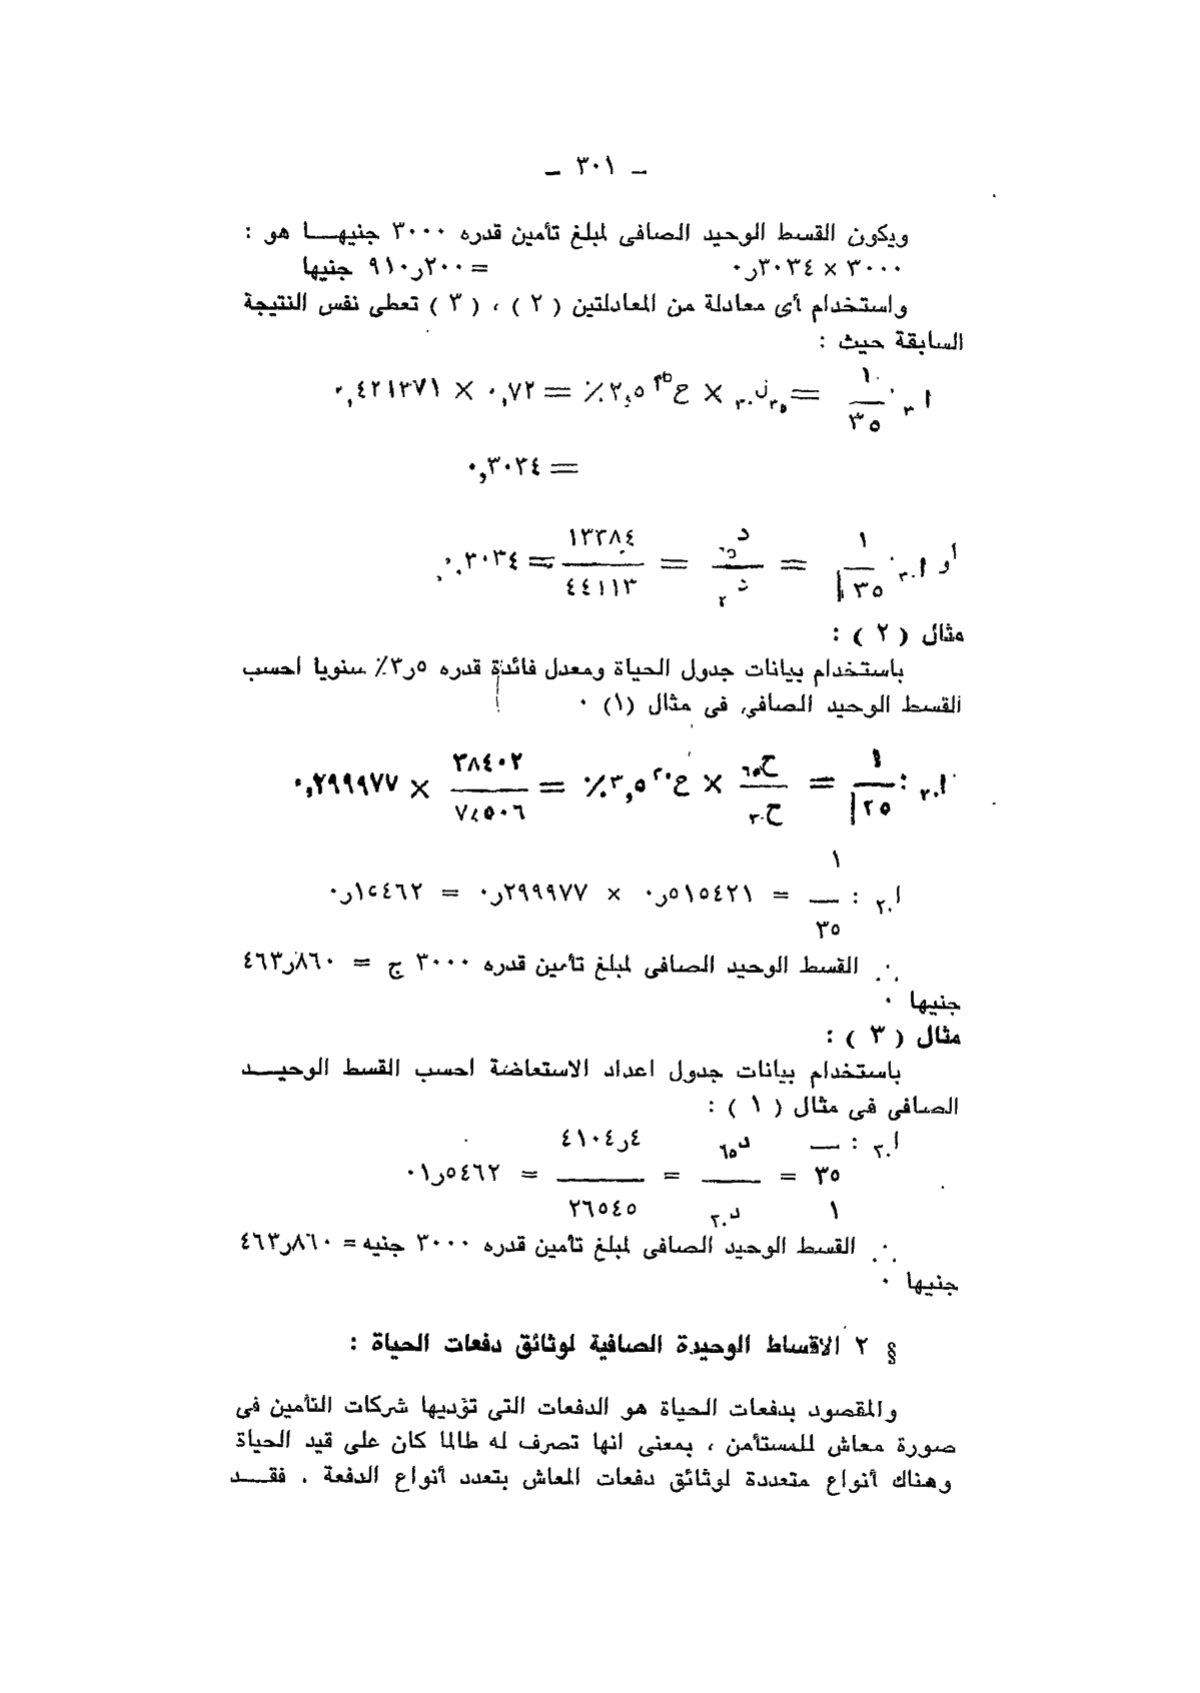 ـ ٣٠١ ـ
ويكون القسط الوحيد الصافى لمبلغ تأمين قدره ٣٠٠٠ جنيهـــا هو :
٣٠٠٠ × ٣٠٣٤ر٠ = ٢٠٠ر٩١٠ جنيها
واستخدام أى معادلة من المعادلتين ( ٢ ) ، ( ٣ ) تعطى نفس النتيجة
السابقة حيث :
١
٣٥
= ٠٫٧٢ × ٠٫٤٢١٣٧١
= ٠٫٣٠٣٤
أو
١
٣٥
=
=
١٣٣٨٤
٤٤١١٣
= ٠٫٣٠٣٤
مثال ( ٢ ) :
باستخدام بيانات جدول الحياة ومعدل فائدة قدره ٥ر٣٪ سنويا احسب
القسط الوحيد الصافى فى مثال (١) ٠
١
=
ح٦٥
ح٣٠
× ح ٣٫٥٪ =
٣٨٤٠٢
٧٤٥٠٦
× ٠٫٢٩٩٩٧٧
١
: ٣٥ = ٥١٥٤٢١ر٠ × ٢٩٩٩٧٧ر٠ = ١٥٤٦٢ر٠
∴ القسط الوحيد الصافى لمبلغ تأمين قدره ٣٠٠٠ ج = ٨٦٠ر٤٦٣
جنيها ٠
مثال ( ٣ ) :
باستخدام بيانات جدول اعداد الاستعاضة احسب القسط الوحيـــد
الصافى فى مثال ( ١ ) :
د٦٥
٤ر٤١٠٤
٣٥ = = = ٥٤٦٢ر٠١
١
د٣٠
٢٦٥٤٥
∴ القسط الوحيد الصافى لمبلغ تأمين قدره ٣٠٠٠ جنيه = ٨٦٠ر٤٦٣
جنيها ٠
§ ٢ الاقساط الوحيدة الصافية لوثائق دفعات الحياة :
والمقصود بدفعات الحياة هو الدفعات التى تؤديها شركات التأمين فى
صورة معاش للمستأمن ، بمعنى انها تصرف له طالما كان على قيد الحياة
وهناك أنواع متعددة لوثائق دفعات المعاش بتعدد أنواع الدفعة . فقـــد